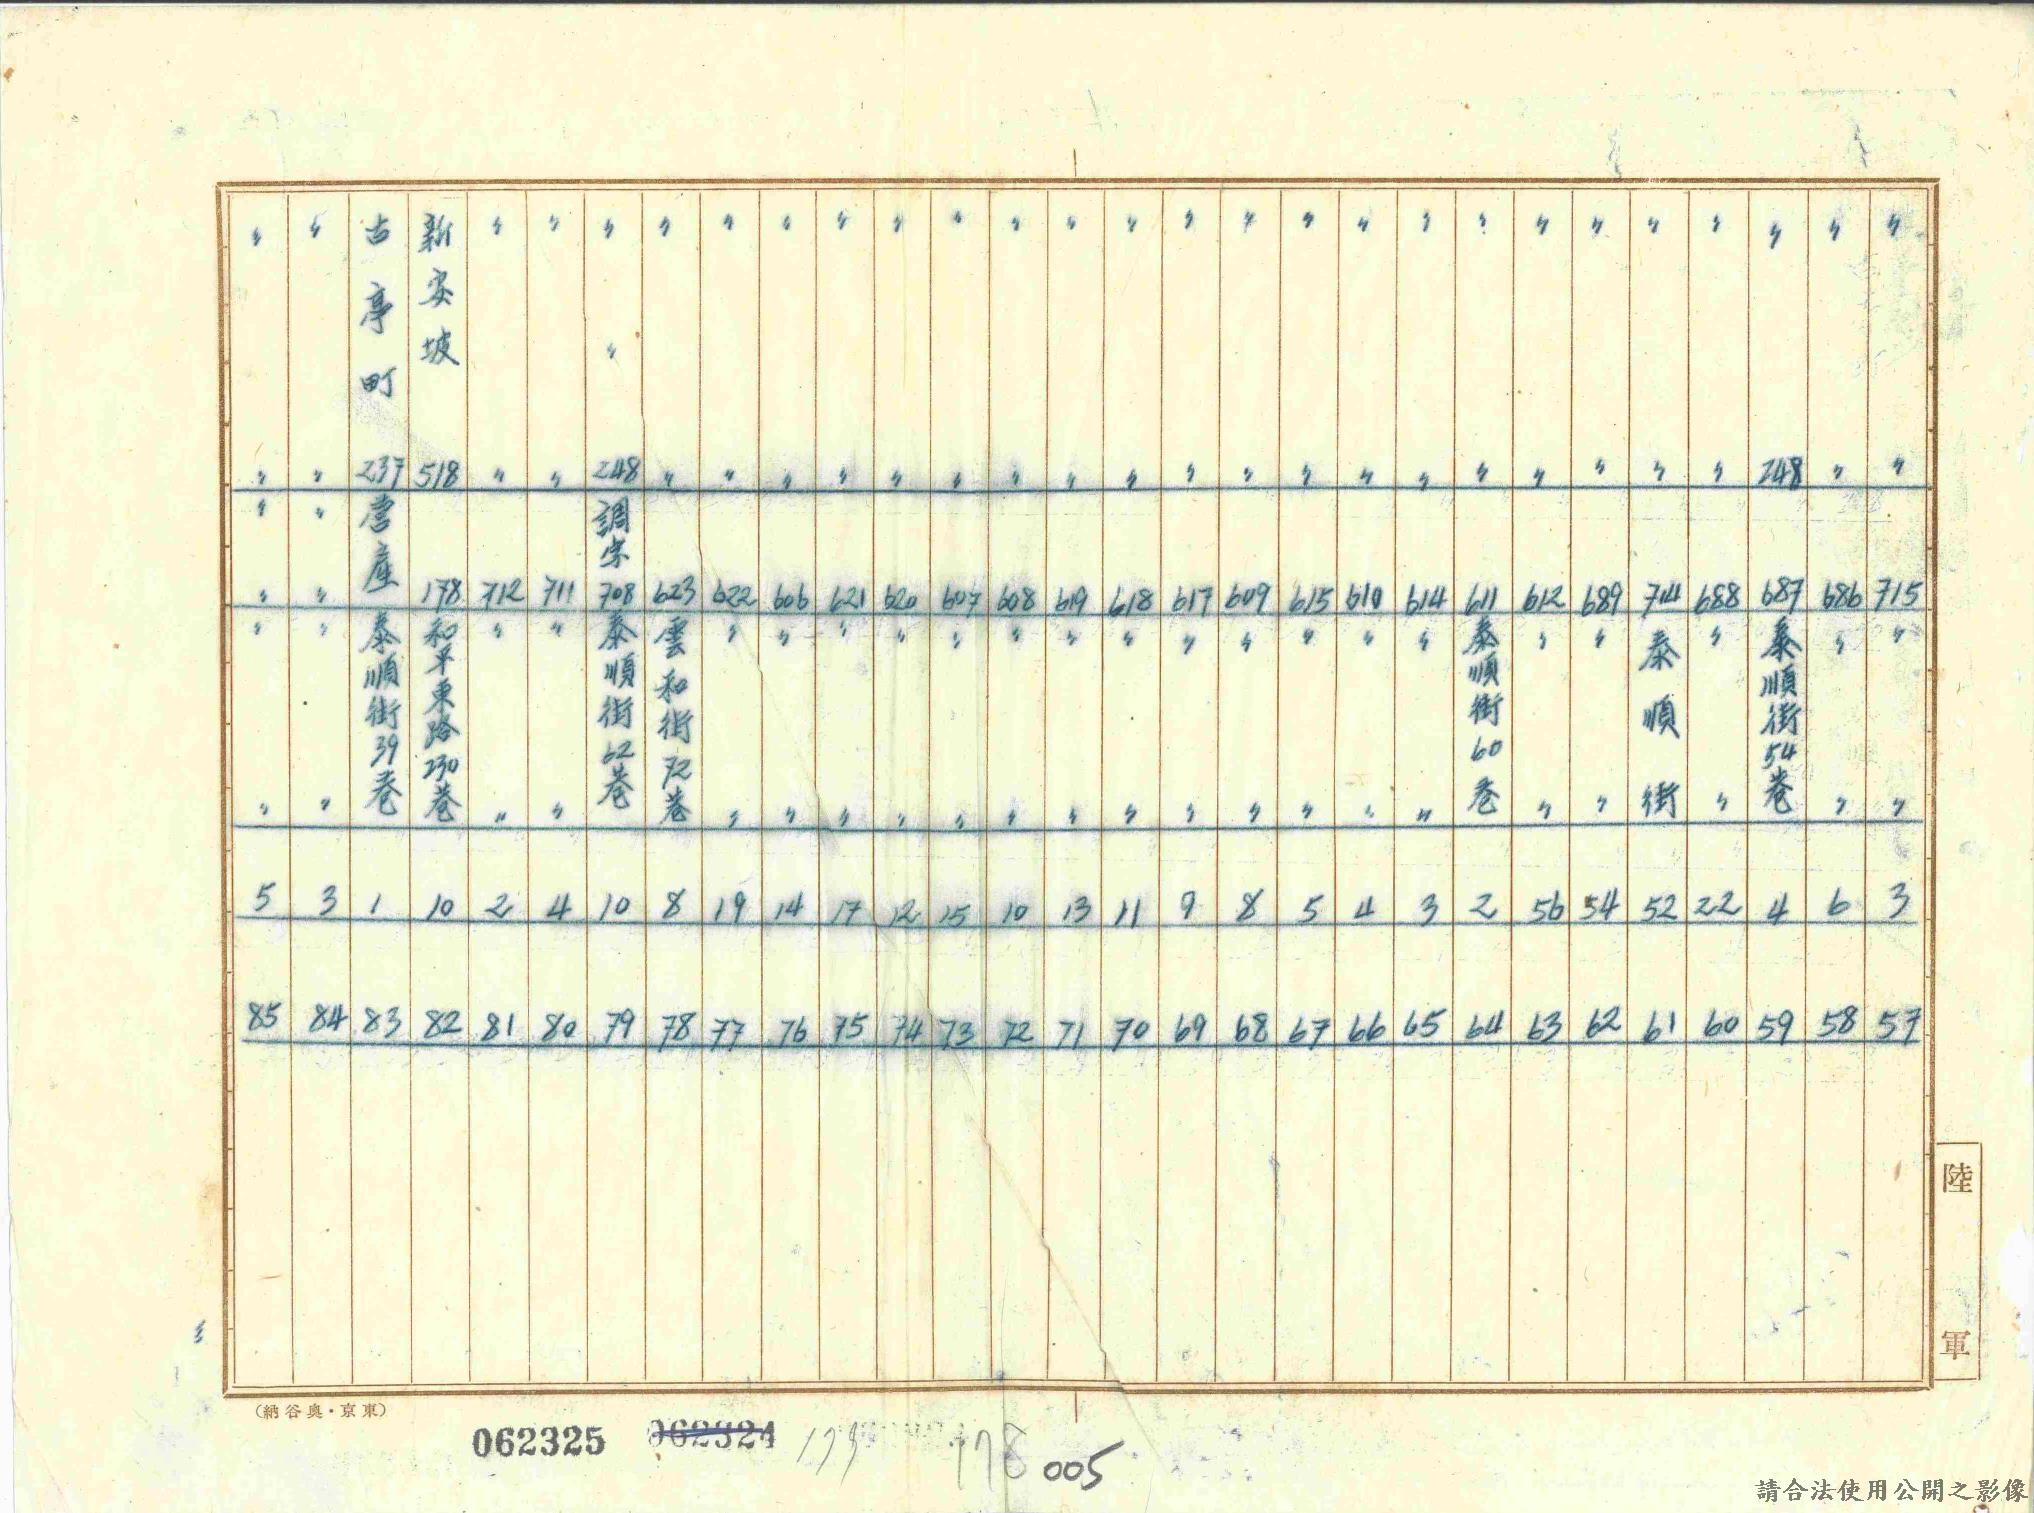 〃 〃 715 〃 〃 3 57
〃 〃 686 〃 〃 6 58
〃 248 687 泰順街54巷 4 59
〃 〃 688 〃 〃 22 60
〃 〃 714 泰順街 52 61
〃 〃 689 〃 〃 54 62
〃 〃 612 〃 〃 56 63
〃 〃 611 泰順街60巷 2 64
〃 〃 614 〃 〃 3 65
〃 〃 610 〃 〃 4 66
〃 〃 615 〃 〃 5 67
〃 〃 609 〃 〃 8 68
〃 〃 617 〃 〃 9 69
〃 〃 618 〃 〃 11 70
〃 〃 619 〃 〃 13 71
〃 〃 608 〃 〃 10 72
〃 〃 607 〃 〃 15 73
〃 〃 620 〃 〃 12 74
〃 〃 621 〃 〃 17 75
〃 〃 606 〃 〃 14 76
〃 〃 622 〃 〃 19 77
〃 〃 623 雲和街72巷 8 78
〃 〃 248 調宗 708 泰順街62巷 10 79
〃 〃 711 〃 〃 4 80
〃 〃 712 〃 〃 2 81
新安坡 518 178 和平東路230巷 10 82
古亭町 237 營産 泰順街39巷 1 83
〃 〃 〃 〃 〃 〃 3 84
〃 〃 〃 〃 〃 〃 5 85
陸軍
(納谷奥・京東)
062325 062324 178 005
請合法使用公開之影像